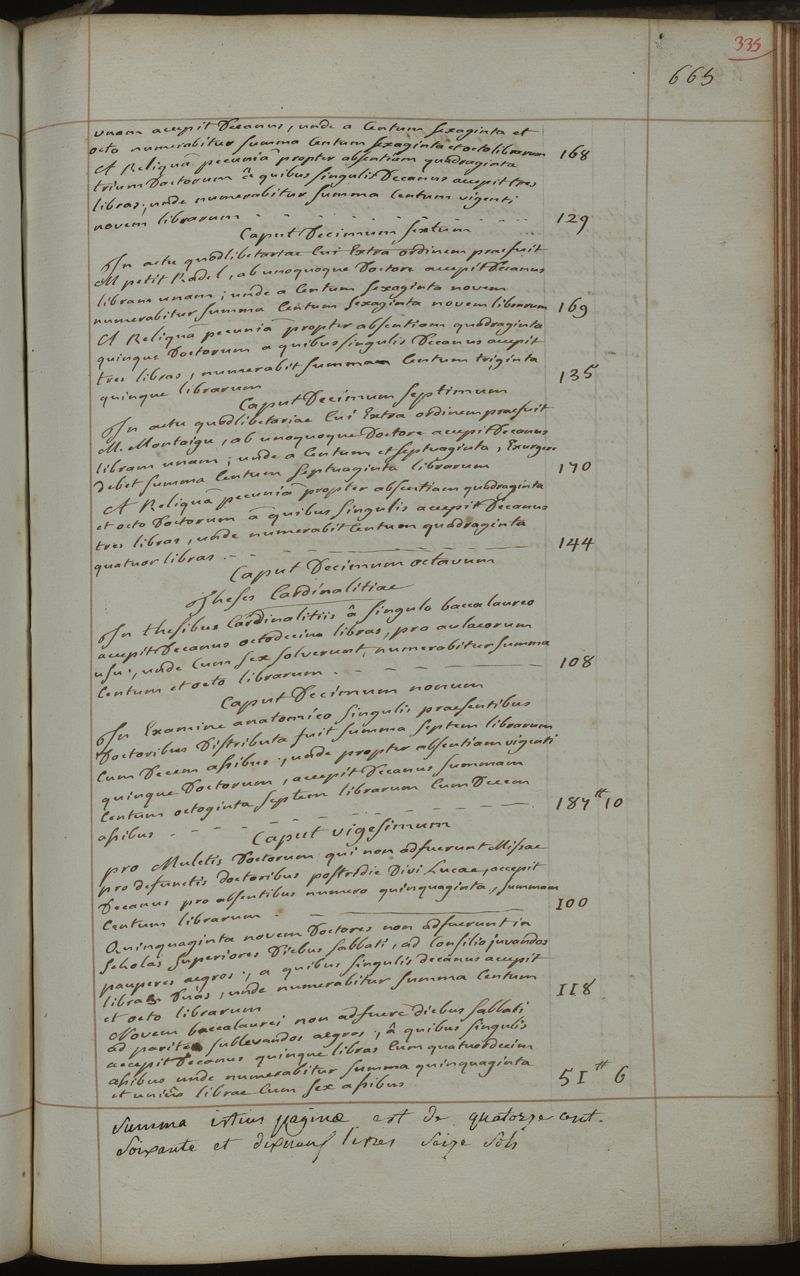 335
665
unam accepit Decanus, unde a Centum sexaginta et
octo numerabitur summa Centum sexaginta et octo librarum 168
A Reliquâ pecuniâ propter absentiam quadraginta
trium Doctorum â quibus singulis Decanus accepit tres
libras, unde numerabitur summa Centum vigenti
novem librarum 129
Caput Decimum sextum
In actu quodlibetariae Cui Extra ordinem praefuit
M petit Radel, ab unoquoque Doctore accepit Decanus
libram unam; unde a Centum sexaginta novem
numerabitur summa Centum sexaginta novem librarum 169
A Reliquâ pecuniâ propter absentiam quadraginta
quinque Doctorum a quibus singulis Decanus accepit
tres libras, numerabit summam Centum triginta
quinque librarum 135
Caput Decimum septimum
In actu quodlibetariae Cui Extra ordinem praefuit
M. Montaigu, ab unoquoque Doctore accepit Decanus
libram unam; unde a Centum et septuaginta, Exurgere
debet summa Centum septuaginta librarum 170
A Reliquâ pecuniâ propter absentiam quadraginta
et octo Doctorum â quibus singulis accepit Decanus
tres libras, unde numerabit Centum quadraginta
quatuor libras 144
Caput Decimum octavum
Theses Cardinalitiae
In thesibus Cardinalitiis â singulo baccalaureo
accepit Decanus octodecim libras, pro aulaeorum
usu, unde Cum sex solverunt, numerabitur summa
Centum et octo librarum 108
Caput Decimum nonum
In Examine anatomico singulis praesentibus
Doctoribus Distributa fuit summa septem librarum
Cum Decem assibus, unde propter absentiam vigenti
quinque Doctorum, accepit Decanus summam
Centum octoginta septem librarum Cum Decem
assibus 187 ₶ 10
Caput vigesimum
pro Mulctis Doctorum qui non adfuerunt Missae
pro defunctis doctoribus postridie Divi Lucae, accepit
Decanus pro absentibus numero quinquaginta, summam
Centum librarum 100
Quinquaginta novem Doctores non adfuerunt in
Scholas Superiores Diebus Sabbati, ad Consilio juvandos
pauperes aegros, a quibus singulis decanus accepit
libras Duas, unde numerabitur summa Centum
et octo librarum 118
Novem baccalaurei non adfuere diebus Sabbati
ad pariter sublevandos aegros, â quibus singulis
accepit Decanus quinque libras Cum quatuordecim
assibus unde numerabitur summa quinquaginta
et unius librae Cum sex assibus 51 ₶ 6
Summa istius paginæ est de quatorze cent.
Soixante et dixneuf livres seize sols